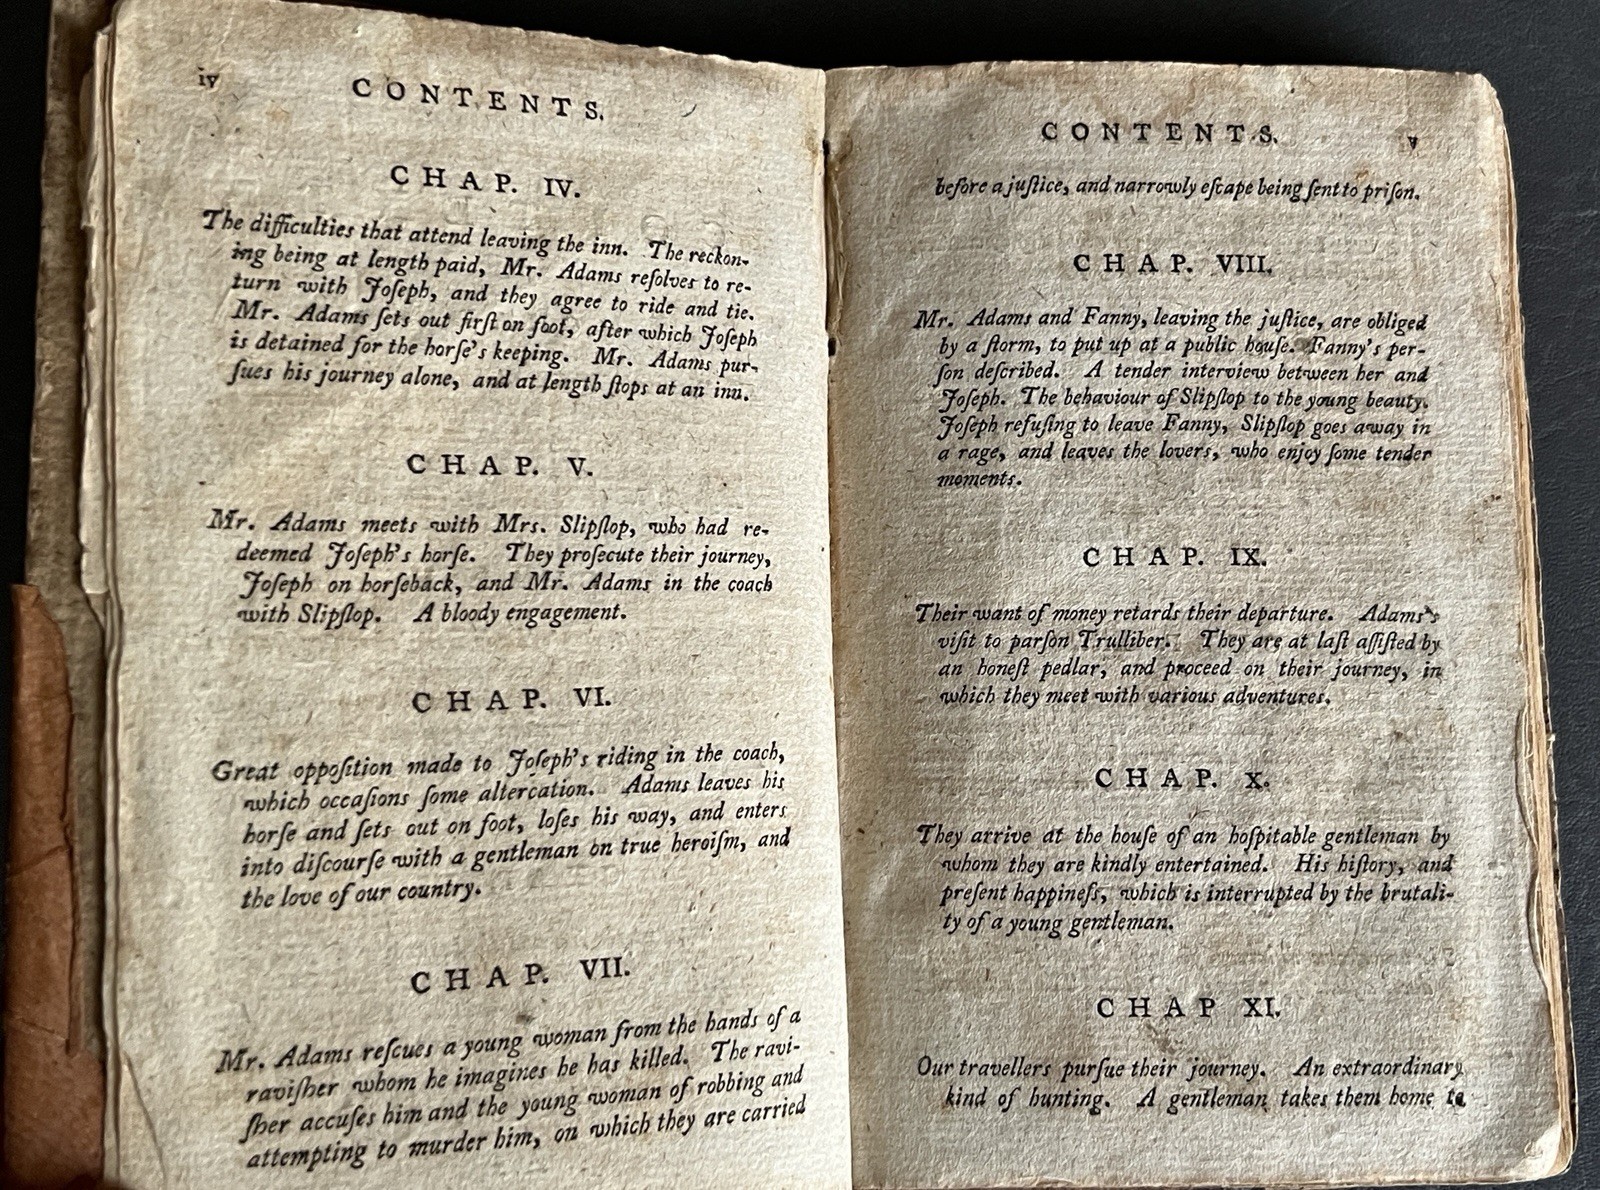 iv
CONTENTS.
CHAP. IV.
The difficulties that attend leaving the inn. The reckon-
ing being at length paid, Mr. Adams reſolves to re-
turn with Joſeph, and they agree to ride and tie.
Mr. Adams ſets out firſt on foot, after which Joſeph
is detained for the horſe's keeping. Mr. Adams pur-
ſues his journey alone, and at length ſtops at an inn.
CHAP. V.
Mr. Adams meets with Mrs. Slipſlop, who had re-
deemed Joſeph's horſe. They proſecute their journey,
Joſeph on horſeback, and Mr. Adams in the coach
with Slipſlop. A bloody engagement.
CHAP. VI.
Great oppoſition made to Joſeph's riding in the coach,
which occaſions ſome altercation. Adams leaves his
horſe and ſets out on foot, loſes his way, and enters
into diſcourſe with a gentleman on true heroiſm, and
the love of our country.
CHAP. VII.
Mr. Adams reſcues a young woman from the hands of a
raviſher whom he imagines he has killed. The ravi-
ſher accuſes him and the young woman of robbing and
attempting to murder him, on which they are carried
CONTENTS. v
before a juſtice, and narrowly eſcape being ſent to priſon.
CHAP. VIII.
Mr. Adams and Fanny, leaving the juſtice, are obliged
by a ſtorm, to put up at a public houſe. Fanny's per-
ſon deſcribed. A tender interview between her and
Joſeph. The behaviour of Slipſlop to the young beauty.
Joſeph refuſing to leave Fanny, Slipſlop goes away in
a rage, and leaves the lovers, who enjoy ſome tender
moments.
CHAP. IX.
Their want of money retards their departure. Adams's
viſit to parſon Trulliber. They are at laſt aſſiſted by
an honeſt pedlar, and proceed on their journey, in
which they meet with various adventures.
CHAP. X.
They arrive at the houſe of an hoſpitable gentleman by
whom they are kindly entertained. His hiſtory, and
preſent happineſs, which is interrupted by the brutali-
ty of a young gentleman.
CHAP XI.
Our travellers purſue their journey. An extraordinary
kind of hunting. A gentleman takes them home to